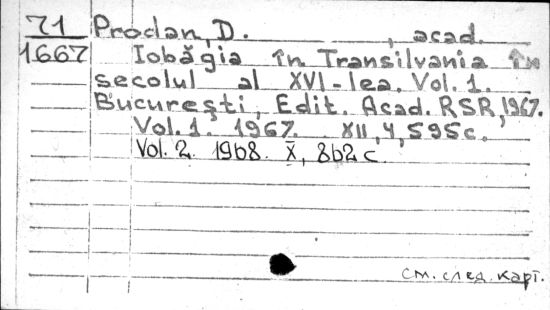 71 Prodan, D. , acad.
1667 Iobăgia în Transilvania în
secolul al XVI-lea. Vol. 1.
Bucureşti, Edit. Acad. RSR, 1967.
Vol. 1. 1967. XII, 4, 595c.
Vol. 2. 1968. X, 862 c.
См. след. карт.